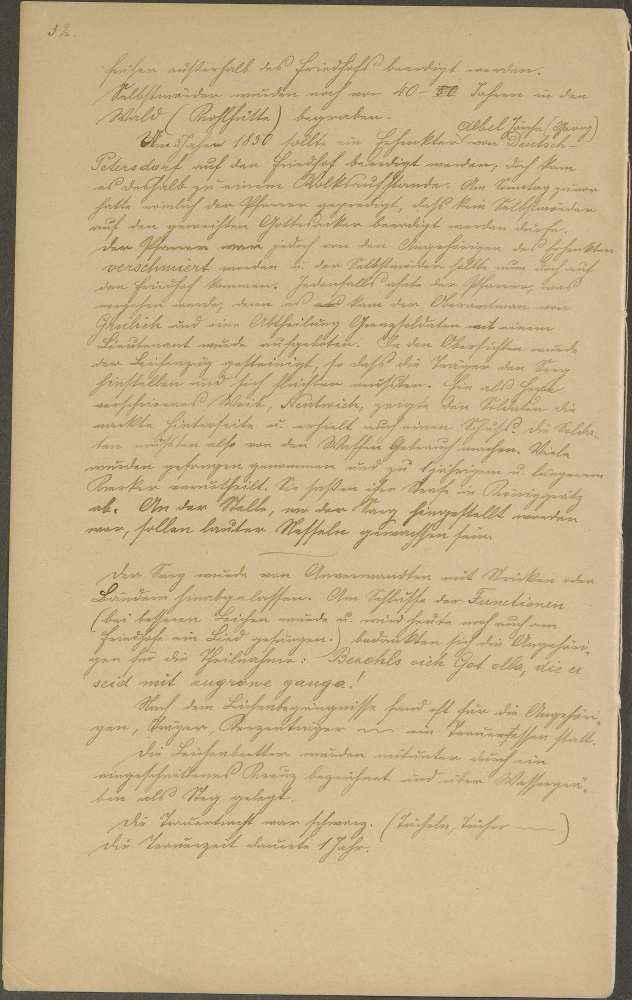 32.
früher außerhalb des Friedhofs beerdigt werden.
Selbstmörder wurden noch vor 40-50 Jahren in den
Wald (Kohlhütte) begraben.
Albel Jörche (Georg)
Um's Jahr 1850 sollte ein Erhenkter von Deutsch-
Petersdorf auf den Friedhof beerdigt werden; doch kam
es deshalb zu einem Volksaufstande. Am Sonntag zuvor
hatte nämlich der Pfarrer gepredigt, daß kein Selbstmörder
auf den geweihten Gottesacker beerdigt werden dürfe.
Der Pfarrer war jedoch von den Angehörigen des Erhenkten
verschmiert worden u. der Selbstmörder sollte nun doch auf
den Friedhof kommen. Jedenfalls ahnte der Pfarrer, was
geschehen werde, denn es kam der Oberamtmann von
Grulich und eine Abtheilung Grenzsoldaten mit einem
Lieutenant wurde aufgeboten. In den Obersichten wurde
der Leichenzug gesteinigt, so daß die Träger den Sarg
hinstellen und sich flüchten mußten. Ein als Hexe
verschrieenes Weib, Nentwich, zeigte den Soldaten die
nackte Hinterseite u. erhielt auch einen Schuß. Die Solda-
ten mußten also von den Waffen Gebrauch machen. Viele
wurden gefangen genommen und zu 1jährigem u. längerem
Kerker verurtheilt. Sie saßen ihre Strafe in Königgrätz
ab. An der Stelle, wo der Sarg hingestellt worden
war, sollen lauter Nesseln gewachsen sein.
Der Sarg wurde von Anverwandten mit Stricken oder
Bändern hinabgelassen. Am Schlusse der Functionen
(bei besseren Leichen wurde u. wird heute noch auch am
Friedhofe ein Lied gesungen.) bedankten sich die Angehöri-
gen für die Theilnahme: Bezohls eich Got olla, die er
seid mit zugrowe ganga!
Nach dem Leichenbegängnisse fand oft für die Angehöri-
gen, Träger, Kerzenträger ein Traueressen statt.
Die Leichenbretter wurden mitunter durch ein
eingeschnittenes Kreuz bezeichnet und über Wassergrä-
ben als Steg gelegt.
Die Trauertracht war schwarz. (Tücheln, Tücher)
Die Trauerzeit dauerte 1 Jahr.